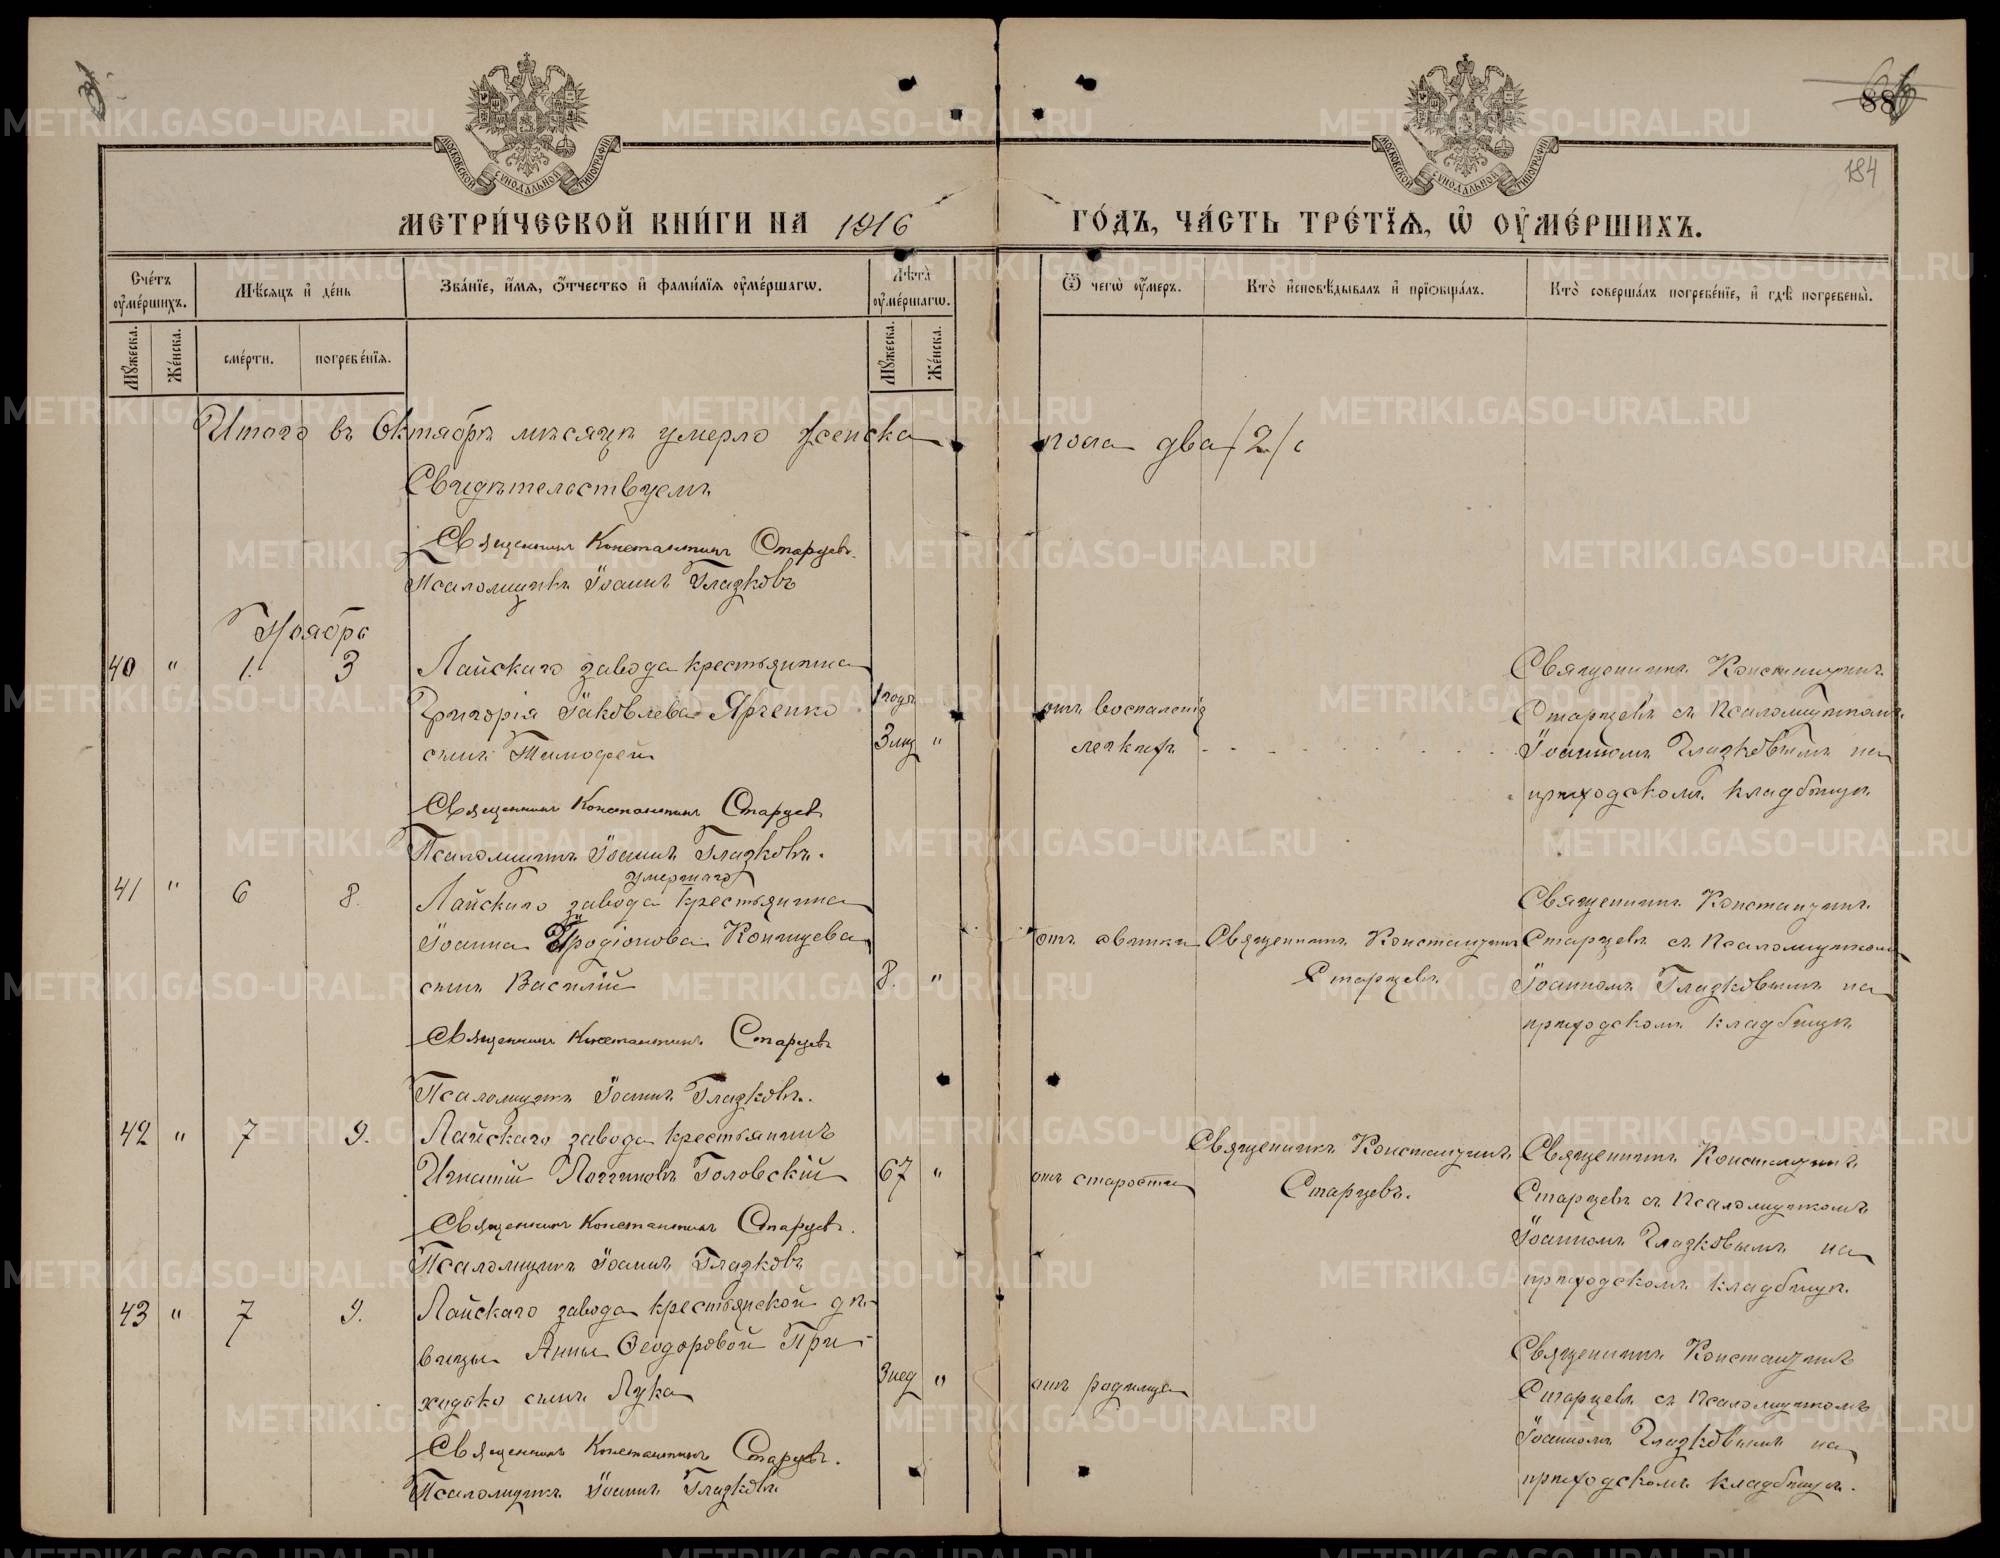 МОСКОВСКОЙ СѴНОДАЛЬНОЙ ТИПОГРАФІИ
МОСКОВСКОЙ СѴНОДАЛЬНОЙ ТИПОГРАФІИ
184
МЕТРИ́ЧЕСКОЙ КНИ́ГИ НА 1916 ГО́ДЪ, ЧА́СТЬ ТРЕ́ТЇѦ, Ѡ ОУ҆МЕ́РШИХЪ.
Сче́тъ оу҆ме́ршихъ.
Мѣ́сяцъ и҆ де́нь
Зва́нїе, и҆́мѧ, ѻ҆́тчество и҆ фами́лїѧ оу҆ме́ршагѡ.
Лѣ́та оу҆ме́ршагѡ.
Ѿ чегѡ̀ оу҆́меръ.
Кто̀ и҆сповѣ́дывалъ и҆ прїѡбща́лъ.
Кто̀ соверша́лъ погребе́нїе, и҆ гдѣ̀ погребены̀.
Мꙋ́жеска. Же́нска.
сме́рти. погребе́нїѧ.
Мꙋ́жеска. Же́нска.
Итого въ Октябрѣ мѣсяцѣ умерло женска пола два /2/
Свидѣтельствуемъ
Священникъ Константинъ Старцевъ.
Псаломщикъ Іоаннъ Гладковъ
Ноябрь
40 " 1. 3 Лайскаго завода крестьянина
Григорія Іаковлева Ярченко
сынъ Тимофей
1 годъ
3 мѣс "
отъ воспаленія
легкихъ
Священникъ Константинъ
Старцевъ съ Псаломщикомъ
Іоанномъ Гладковымъ на
приходскомъ кладбищѣ
Священникъ Константинъ Старцевъ
Псаломщикъ Іоаннъ Гладковъ.
умершаго
41 " 6 8. Лайскаго завода крестьянина
Іоанна Иродіонова
сынъ Василій 8. "
отъ
Священникъ Константинъ
Старцевъ
Священникъ Константинъ
Старцевъ съ Псаломщикомъ
Іоанномъ Гладковымъ на
приходскомъ кладбищѣ
Священникъ Константинъ Старцевъ
Псаломщикъ Іоаннъ Гладковъ.
42 " 7 9. Лайскаго завода крестьянинъ
Игнатій Логгиновъ Головскій 67 "
отъ старости
Священникъ Константинъ
Старцевъ.
Священникъ Константинъ
Старцевъ съ Псаломщикомъ
Іоанномъ Гладковымъ на
приходскомъ кладбищѣ.
Священникъ Константинъ Старцевъ.
Псаломщикъ Іоаннъ Гладковъ
43 " 7 9. Лайскаго завода крестьянской дѣ-
вицы Анны Ѳеодоровой При-
ходько сынъ Лука
3 нед "
отъ родимца
Священникъ Константинъ
Старцевъ съ Псаломщикомъ
Іоанномъ Гладковымъ на
приходскомъ кладбищѣ.
Священникъ Константинъ Старцевъ.
Псаломщикъ Іоаннъ Гладковъ
METRIKI.GASO-URAL.RU